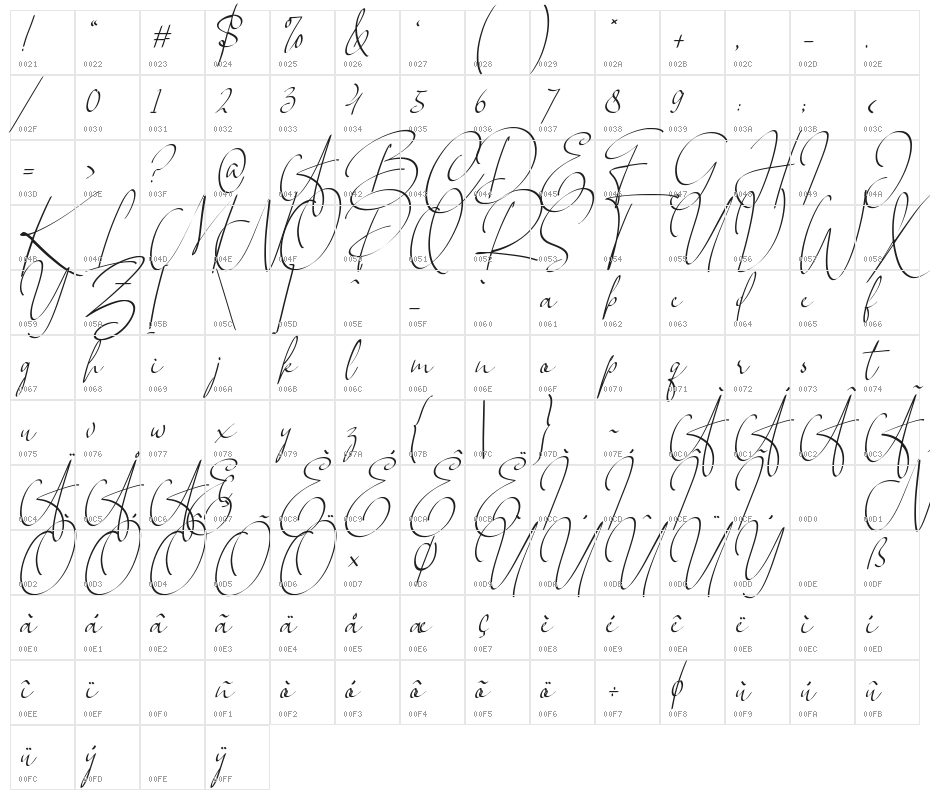 ! " # $ % & ' ( ) * + , - .
0021 0022 0023 0024 0025 0026 0027 0028 0029 002A 002B 002C 002D 002E
/ 0 1 2 3 4 5 6 7 8 9 : ; <
002F 0030 0031 0032 0033 0034 0035 0036 0037 0038 0039 003A 003B 003C
= > ? @ A B C D E F G H I J
003D 003E 003F 0040 0041 0042 0043 0044 0045 0046 0047 0048 0049 004A
K L M N O P Q R S T U V W X
004B 004C 004D 004E 004F 0050 0051 0052 0053 0054 0055 0056 0057 0058
Y Z [ \ ] ^ _ ` a b c d e f
0059 005A 005B 005C 005D 005E 005F 0060 0061 0062 0063 0064 0065 0066
g h i j k l m n o p q r s t
0067 0068 0069 006A 006B 006C 006D 006E 006F 0070 0071 0072 0073 0074
u v w x y z { | } ~ À Á Â Ã
0075 0076 0077 0078 0079 007A 007B 007C 007D 007E 00C0 00C1 00C2 00C3
Ä Å Æ Ç È É Ê Ë Ì Í Î Ï Ñ
00C4 00C5 00C6 00C7 00C8 00C9 00CA 00CB 00CC 00CD 00CE 00CF 00D0 00D1
Ò Ó Ô Õ Ö × Ø Ù Ú Û Ü Ý ß
00D2 00D3 00D4 00D5 00D6 00D7 00D8 00D9 00DA 00DB 00DC 00DD 00DE 00DF
à á â ã ä å æ ç è é ê ë ì í
00E0 00E1 00E2 00E3 00E4 00E5 00E6 00E7 00E8 00E9 00EA 00EB 00EC 00ED
î ï ñ ò ó ô õ ö ÷ ø ù ú û
00EE 00EF 00F0 00F1 00F2 00F3 00F4 00F5 00F6 00F7 00F8 00F9 00FA 00FB
ü ý ÿ
00FC 00FD 00FE 00FF